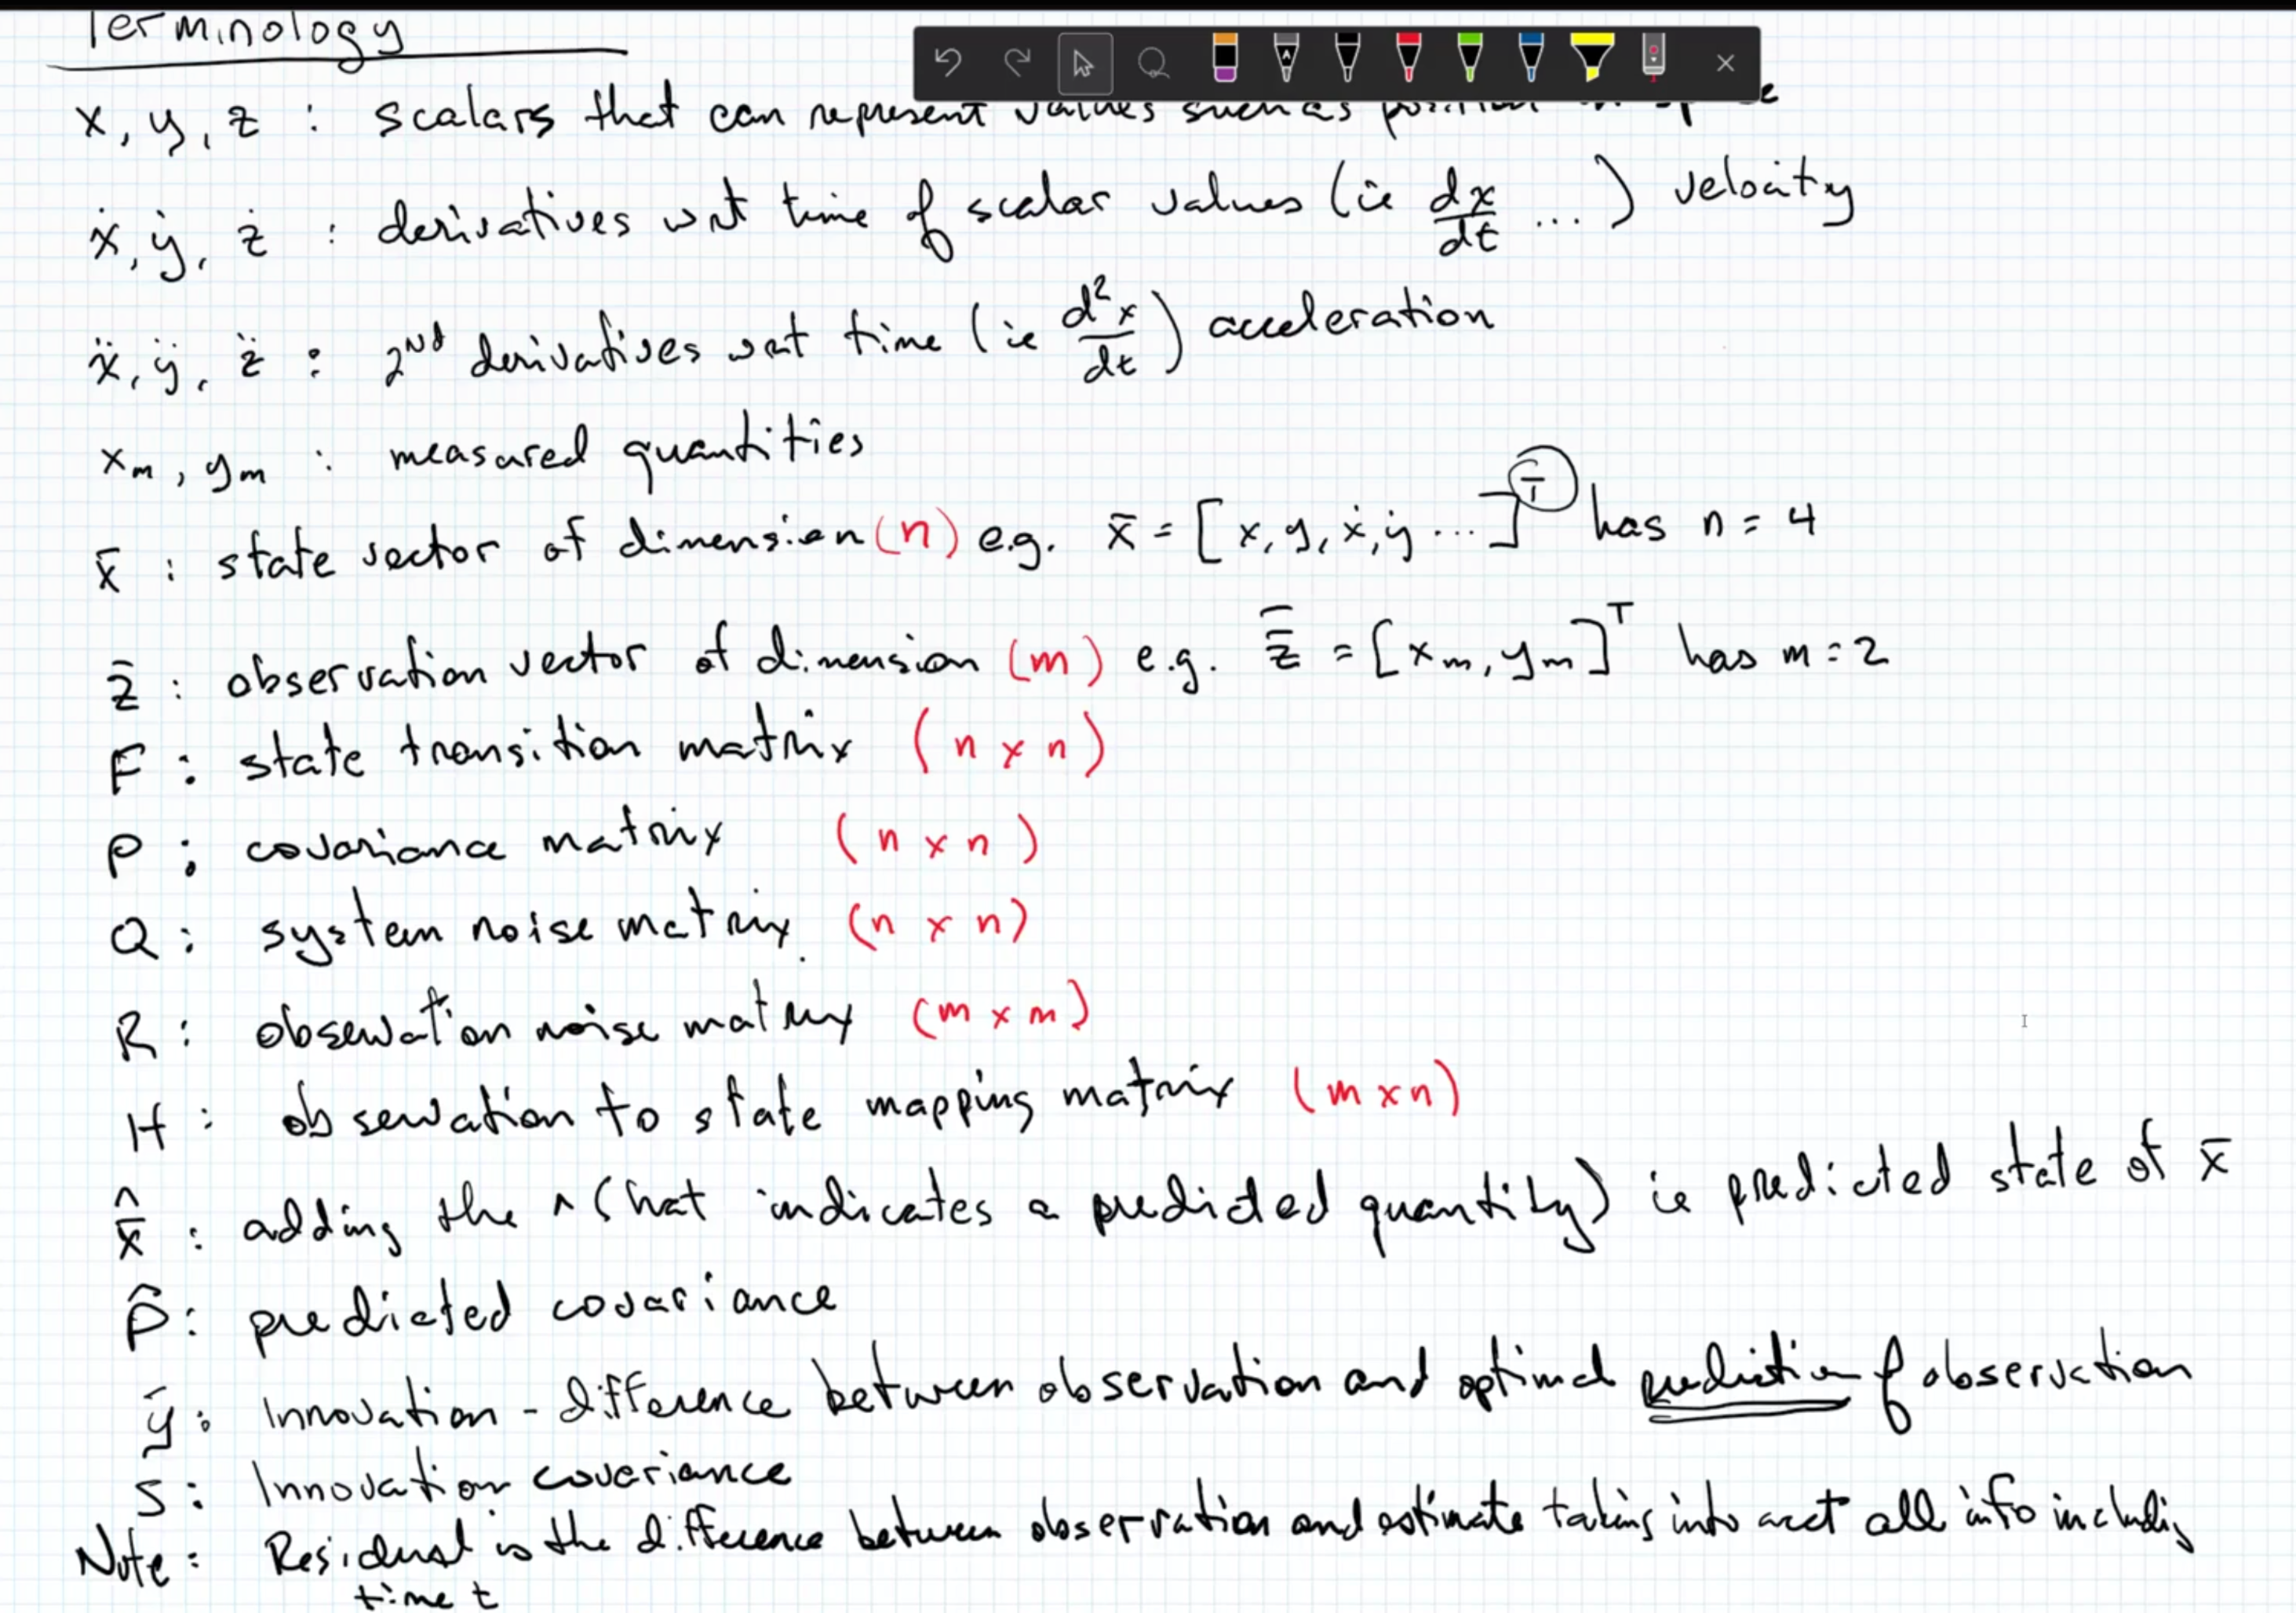 Terminology
x, y, z : scalars that can represent values such as position in space
ẋ, ẏ, ż : derivatives wrt time of scalar values (ie dx/dt ...) velocity
ẍ, ÿ, z̈ : 2nd derivatives wrt time (ie d²x/dt) acceleration
xₘ, yₘ : measured quantities
x̄ : state vector of dimension (n) e.g. x̄ = [x, y, ẋ, ẏ ...]ᵀ has n = 4
z̄ : observation vector of dimension (m) e.g. z̄ = [xₘ, yₘ]ᵀ has m = 2
F : state transition matrix (n x n)
P : covariance matrix (n x n)
Q : system noise matrix (n x n)
R : observation noise matrix (m x m)
H : observation to state mapping matrix (m x n)
x̄̂ : adding the ^ (hat indicates a predicted quantity) ie predicted state of x̄
P̂ : predicted covariance
ȳ : Innovation - difference between observation and optimal prediction of observation
S : Innovation covariance
Note : Residual is the difference between observation and estimate taking into acct all info including
time t